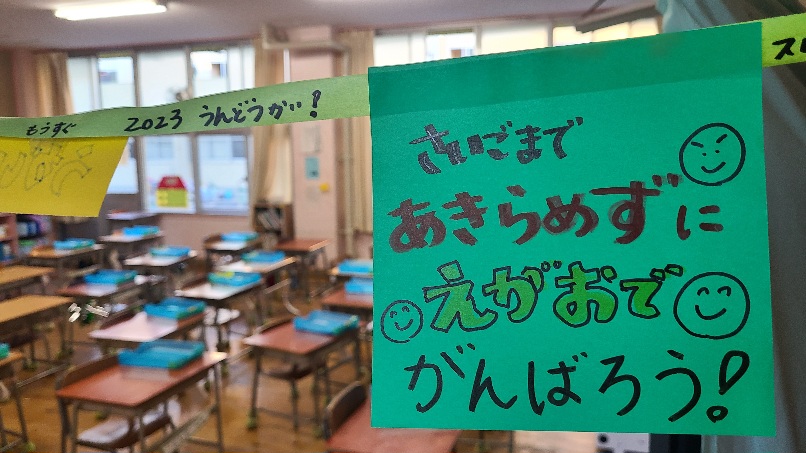 もうすぐ
2023 うんどうかい!
さいごまで
あきらめずに
えがおで
がんばろう!